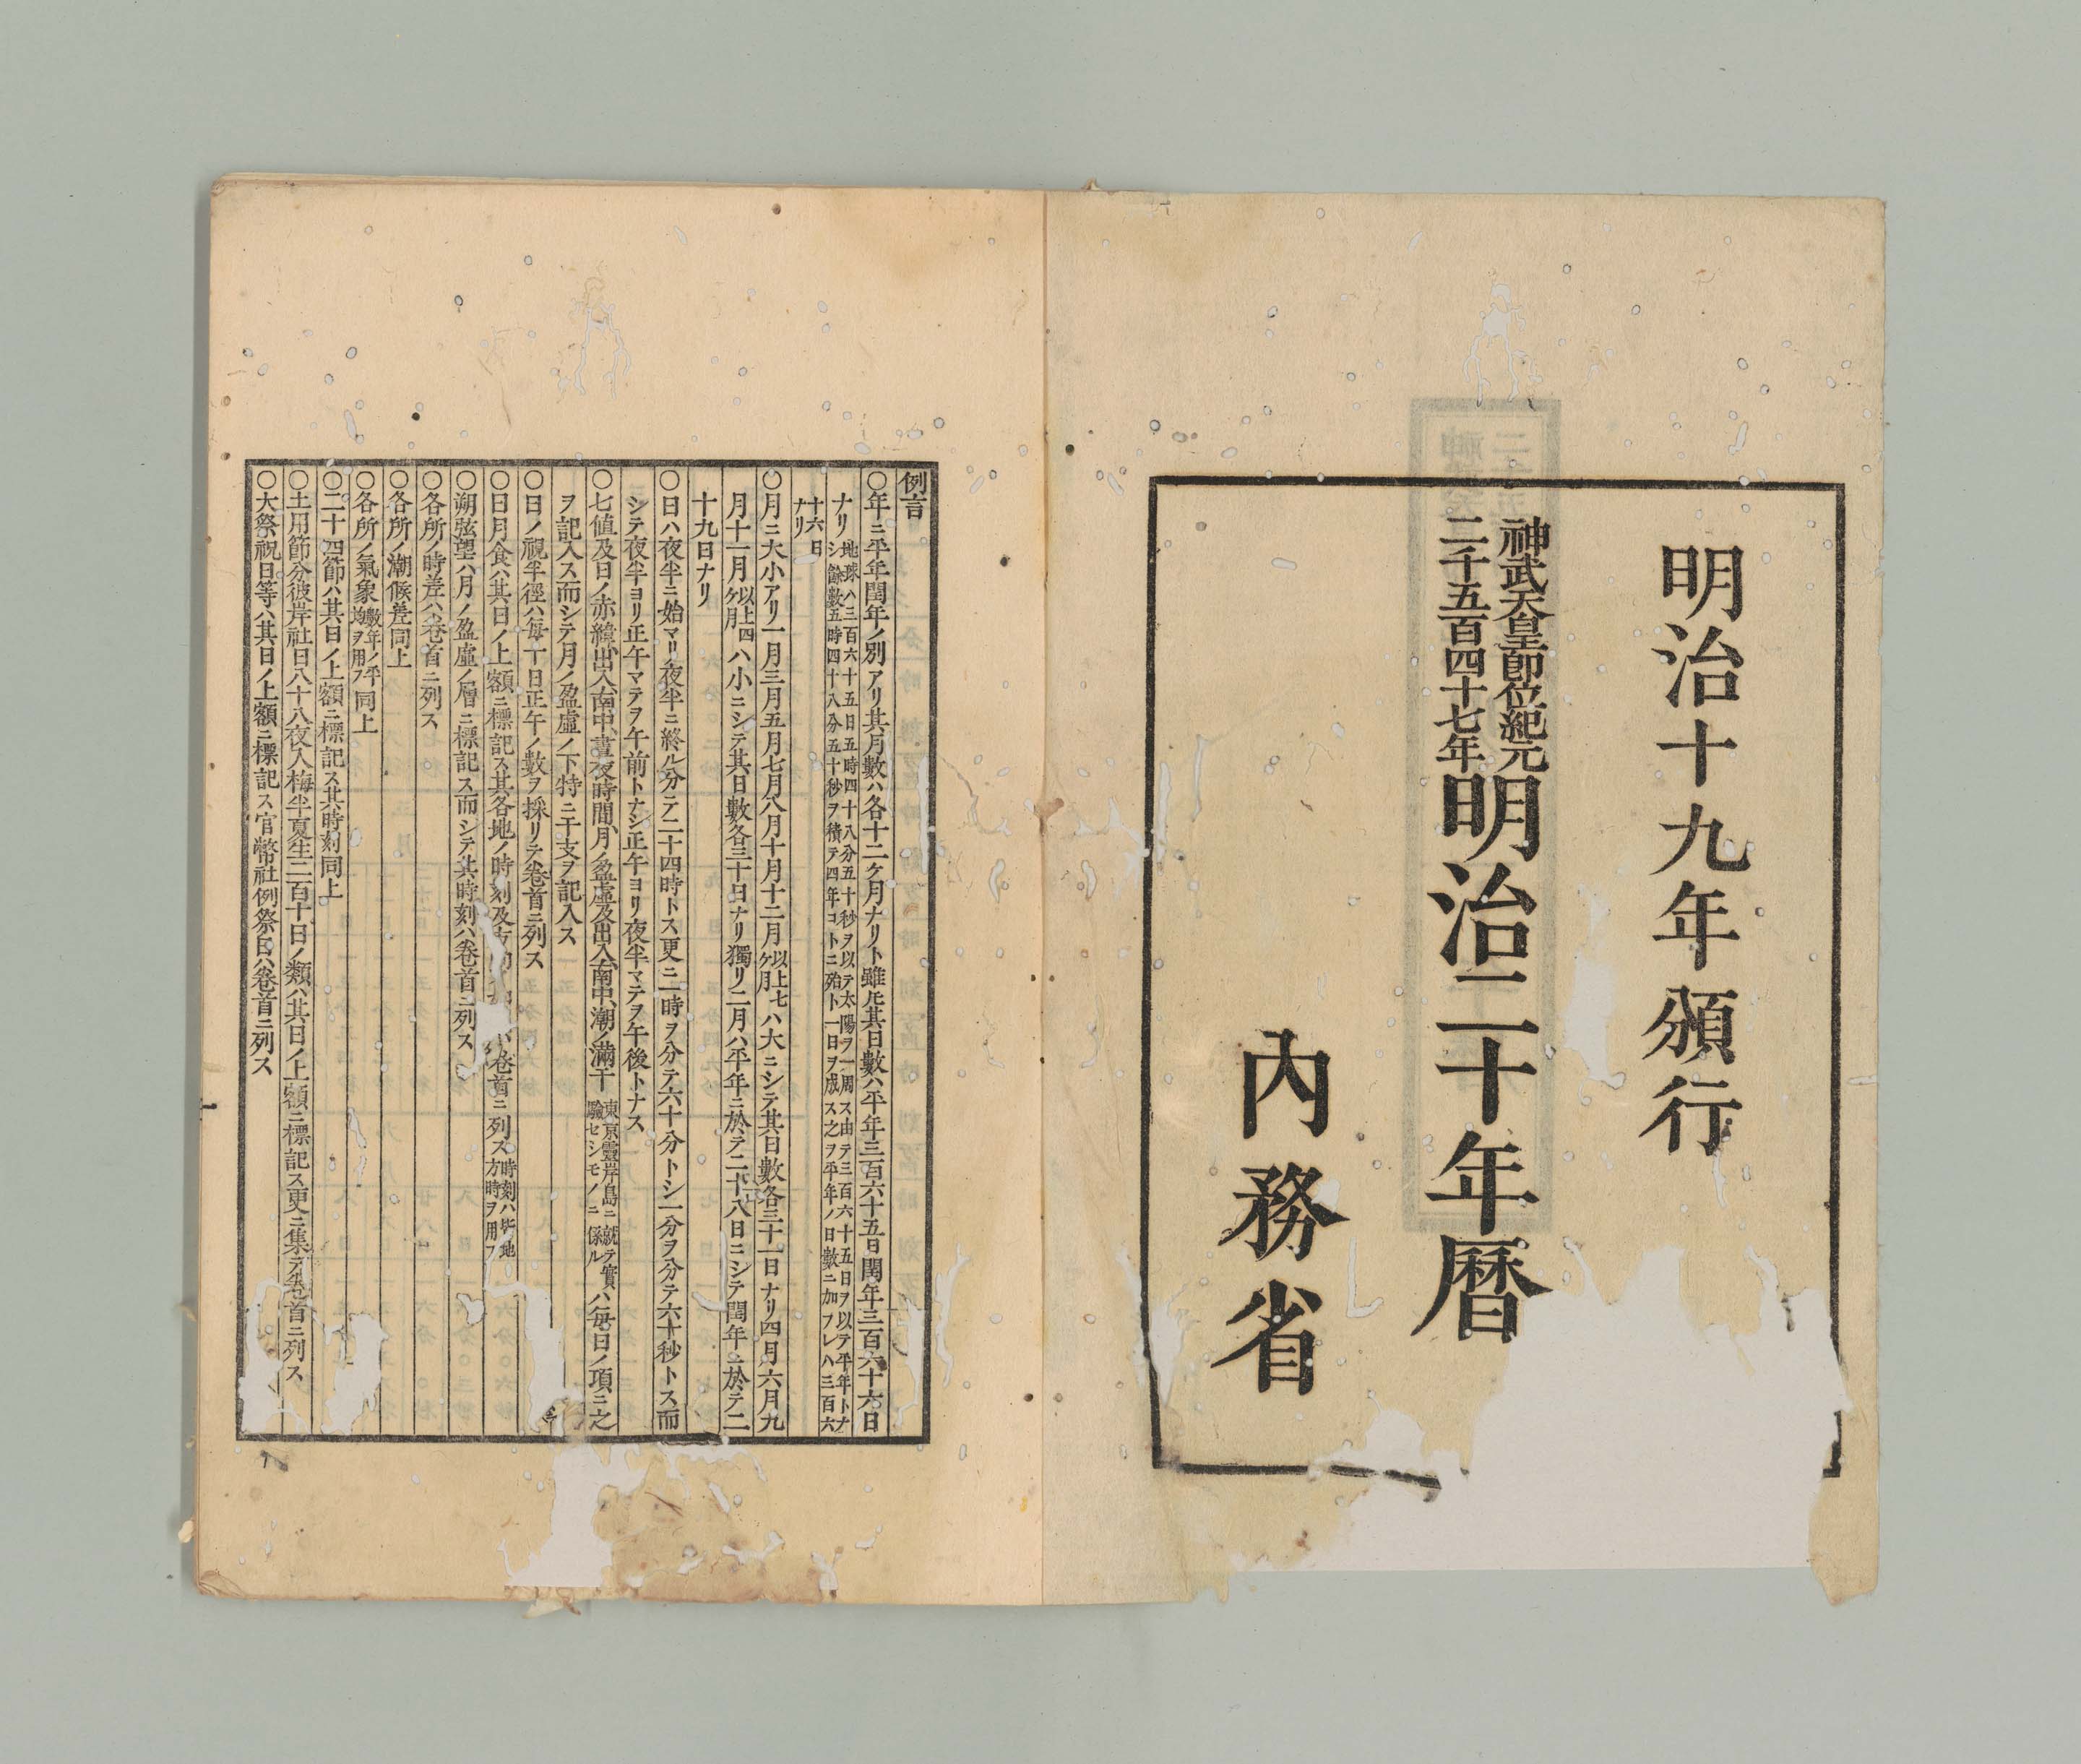 明治十九年頒行
神武天皇即位紀元
二千五百四十七年
明治二十年暦
內務省
例言
〇年ニ平年閏年ノ別アリ其月數ハ各十二ケ月ナリト雖𪜈其日數ハ平年三百六十五日閏年三百六十六日
ナリ
地球ハ三百六十五日五時四十八分五十秒ヲ以テ太陽ヲ一周ス由テ三百六十五日ヲ以テ平年トナ
シ餘數五時四十八分五十秒ヲ積テ四年コトニ殆ト一日ヲ成ス之ヲ平年ノ日數ニ加フレハ三百六
十六日
ナリ
〇月ニ大小アリ一月三月五月七月八月十月十二月
以上七
ケ月
ハ大ニシテ其日數各三十一日ナリ四月六月九
月十一月
以上四
ケ月
ハ小ニシテ其日數各三十日ナリ獨リ二月ハ平年ニ於テ二十八日ニシテ閏年ニ於テ二
十九日ナリ
〇日ハ夜半ニ始マリ夜半ニ終ル分テ二十四時トス更ニ一時ヲ分テ六十分トシ一分ヲ分テ六十秒トス而
シテ夜半ヨリ正午マテヲ午前トナシ正午ヨリ夜半マテヲ午後トナス
〇七値及日ノ赤緯、出入、南中、晝夜時間、月ノ盈虛及出入、南中、潮ノ滿干
東京靈岸島ニ就テ實
驗セシモノニ係ル
ハ每日ノ項ニ之
ヲ記入ス而シテ月ノ盈虛ノ下特ニ干支ヲ記入ス
〇日ノ視半徑ハ每十日正午ノ數ヲ採リテ卷首ニ列ス
〇日月食ハ其日ノ上額ニ標記ス其各地ノ時刻及方
ハ卷首ニ列ス
時刻ハ皆地
方時ヲ用フ
〇朔弦望ハ月ノ盈虛ノ層ニ標記ス而シテ其時刻ハ卷首ニ列ス
〇各所ノ時差ハ卷首ニ列ス
〇各所ノ潮候差同上
〇各所ノ氣象
數年ノ平
均ヲ用フ
同上
〇二十四節ハ其日ノ上額ニ標記ス其時刻同上
〇土用節分彼岸社日八十八夜入梅半夏生二百十日ノ類ハ其日ノ上額ニ標記ス更ニ集テ卷首ニ列ス
〇大祭祝日等ハ其日ノ上額ニ標記ス官幣社例祭日ハ卷首ニ列ス